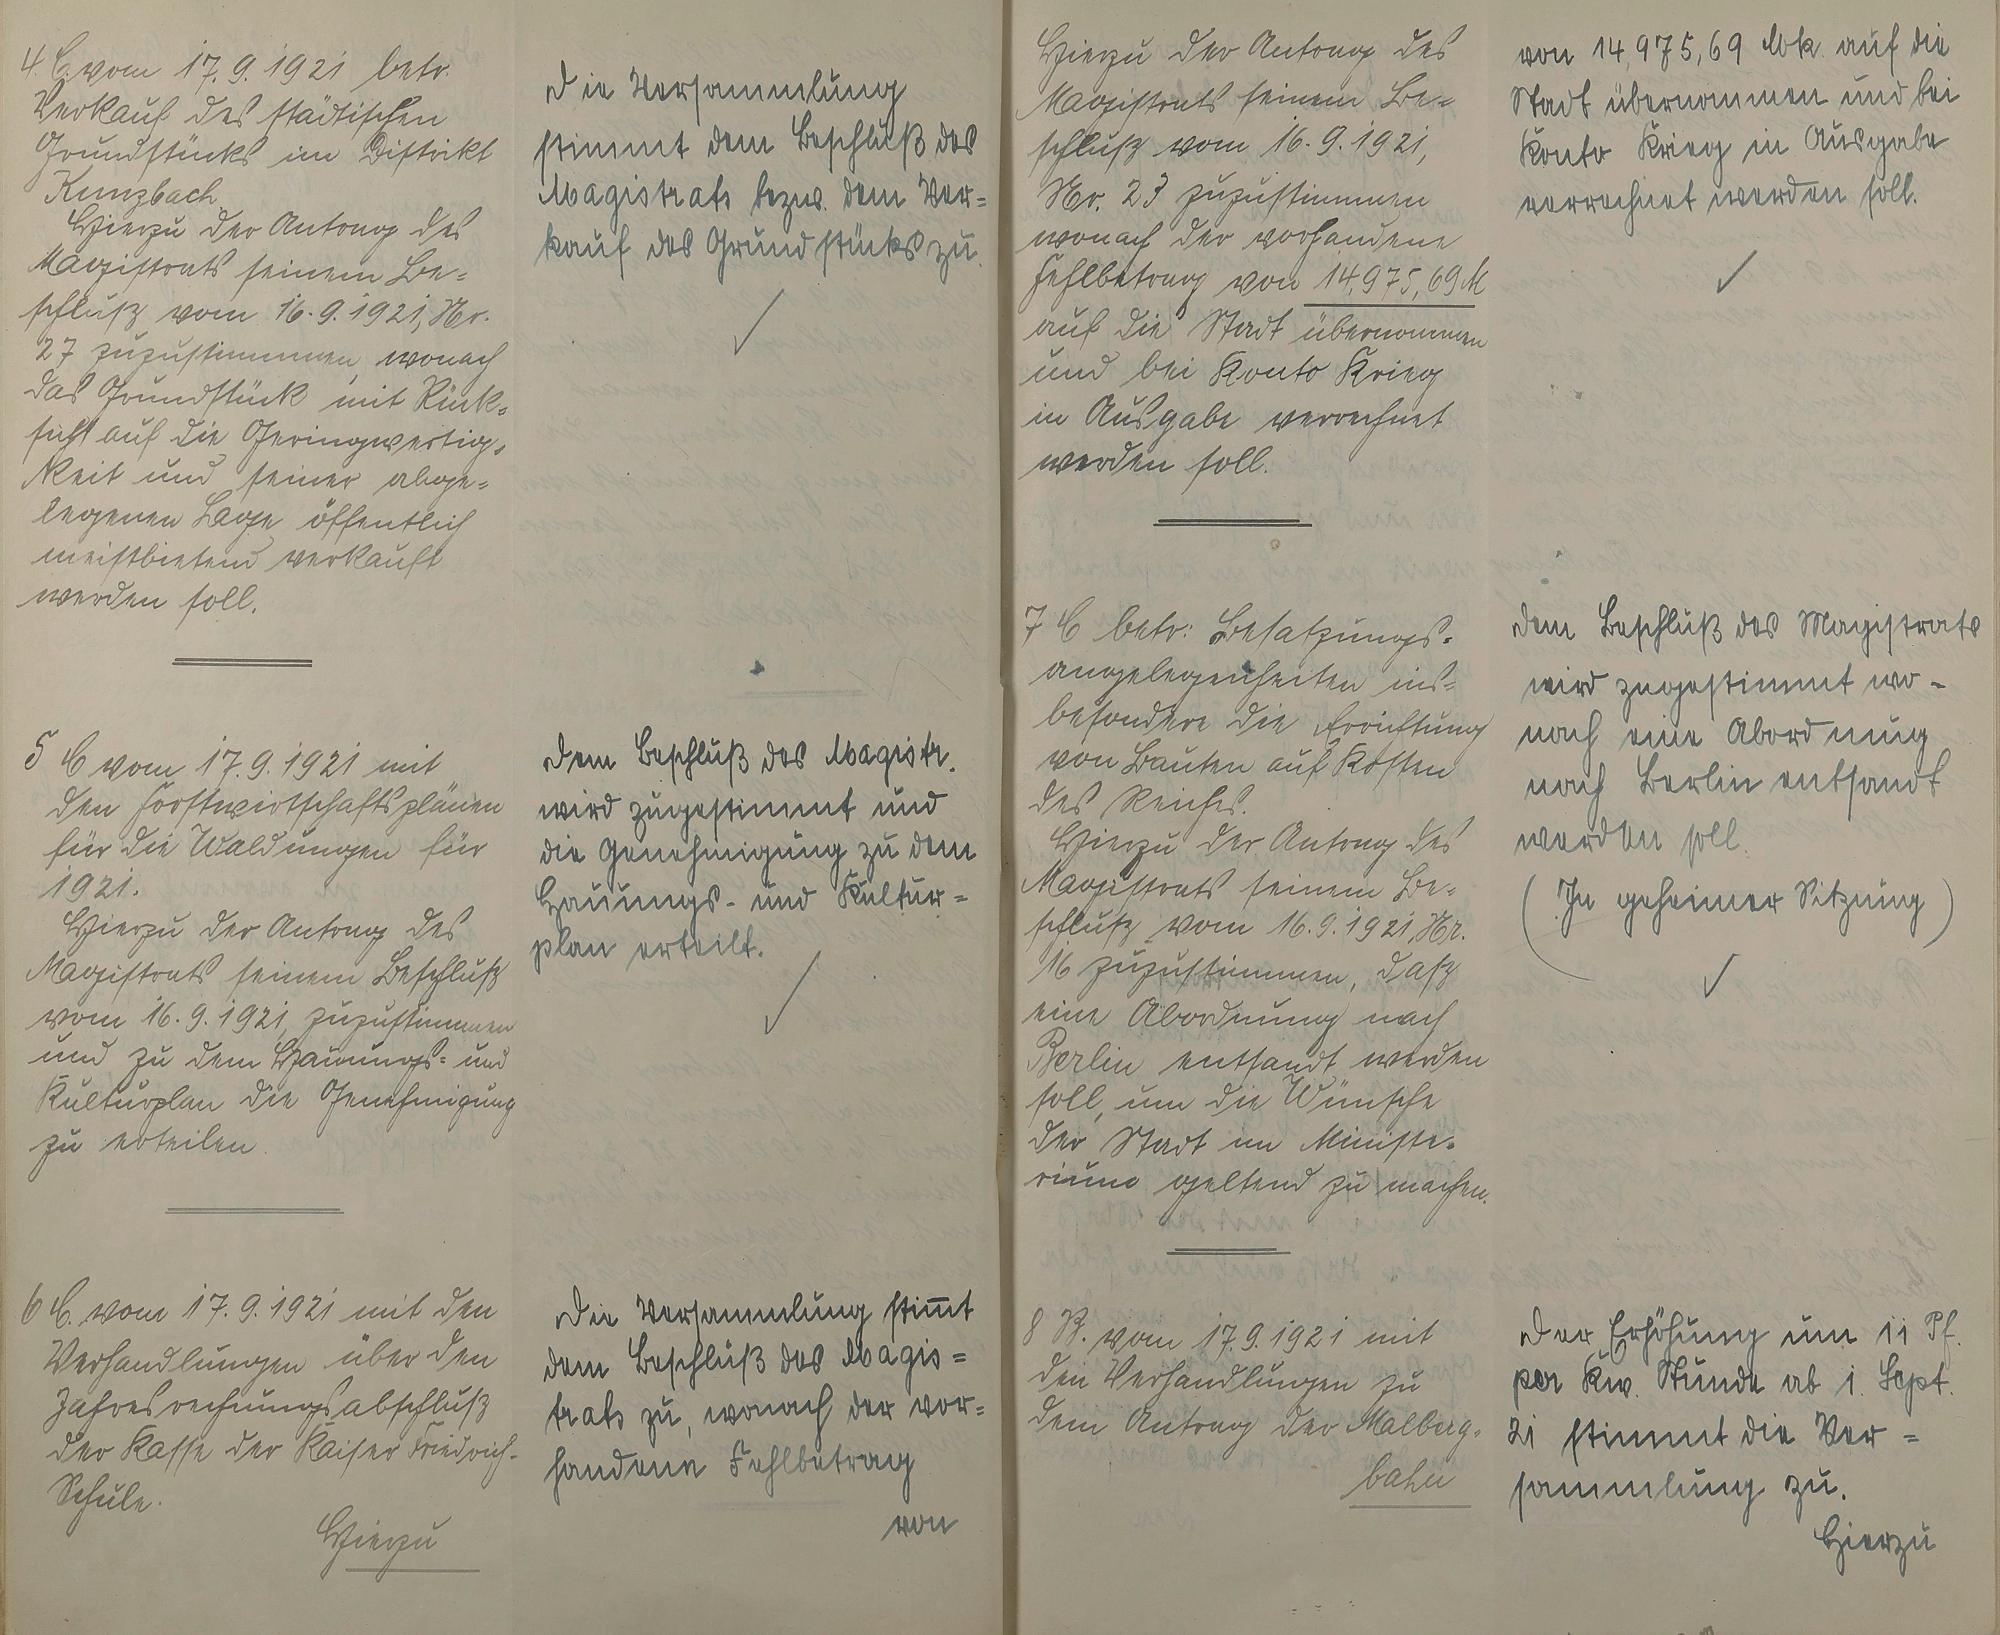 4. C. vom 17.9.1921 betr.
Verkauf des städtischen
Grundstücks im Distrikt
Kunzbach
Hierzu der Antrag des
Magistrats seinem Be=
schluß vom 16.9.1921, Nr.
27 zuzustimmen, wonach
das Grundstück mit Rück=
sicht auf die Geringwertig=
keit und seiner abge=
legenen Lage öffentlich
meistbietend verkauft
werden soll.
Die Versammlung
stimmt dem Beschluß des
Magistrats bezw. dem Ver=
kauf des Grundstücks zu.
5 C vom 17.9.1921 mit
den Forstwirtschaftsplänen
für die Waldungen für
1921.
Hierzu der Antrag des
Magistrats seinem Beschluß
vom 16.9.1921, zuzustimmen
und zu dem Hauungs= und
Kulturplan die Genehmigung
zu erteilen.
Dem Beschluß des Magistr.
wird zugestimmt und
die Genehmigung zu dem
Hauungs- und Kultur=
plan erteilt.
6 C. vom 17.9.1921 mit den
Verhandlungen über den
Jahresrechnungsabschluß
der Kasse der Kaiser Friedrich-
Schule.
Hierzu
Die Versammlung stim̅t
dem Beschluß des Magis=
trats zu, wonach der vor=
handene Fehlbetrag
von
Hierzu der Antrag des
Magistrats seinem Be=
schluß vom 16.9.1921,
Nr. 23 zuzustimmen
wonach der vorhandene
Fehlbetrag von 14.975,69 M
auf die Stadt übernommen
und bei Konto Krieg
in Ausgabe verrechnet
werden soll.
von 14,975,69 Mk. auf die
Stadt übernommen und bei
Konto Krieg in Ausgabe
verrechnet werden soll.
7 C betr: Besatzungs=
angelegenheiten ins=
besondere die Errichtung
von Bauten auf Kosten
des Reiches.
Hierzu der Antrag des
Magistrats seinem Be=
schluß vom 16.9.1921, Nr.
16 zuzustimmen, daß
eine Abordnung nach
Berlin entsandt werden
soll, um die Wünsche
der Stadt im Ministe=
rium geltend zu machen.
Dem Beschluß des Magistrats
wird zugestimmt wo-
nach eine Abordnung
nach Berlin entsandt
werden soll.
(In geheimer Sitzung)
8 B. vom 17.9.1921 mit
den Verhandlungen zu
dem Antrag der Malberg=
bahn
Der Erhöhung um 11 Pf.
per Kw. Stunde ab 1. Sept.
21 stimmt die Ver=
sammlung zu.
Hierzu